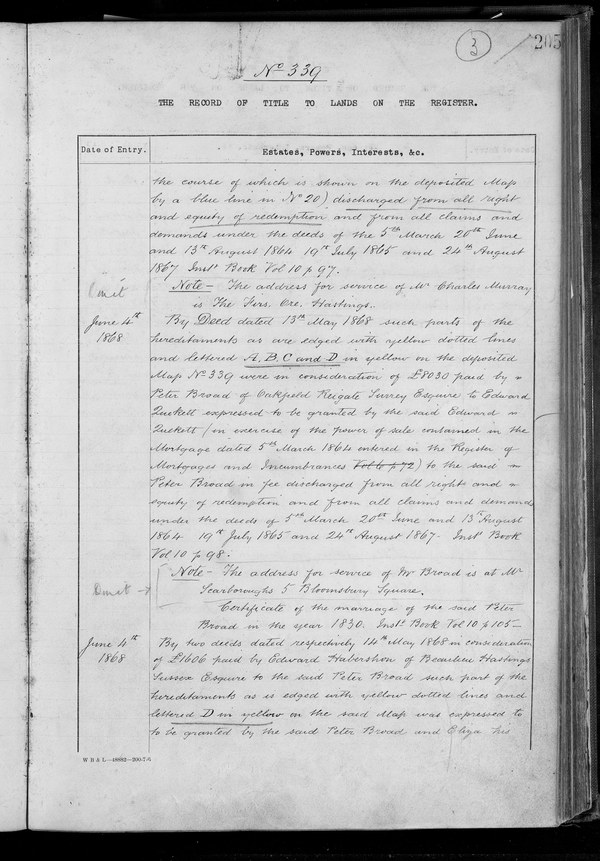 3
205
No 339
THE RECORD OF TITLE TO LANDS ON THE REGISTER.
Date of Entry.
Estates, Powers, Interests, &c.
the course of which is shown on the deposited Map
by a blue line in No 20) discharged from all right
and equity of redemption and from all claims and
demands under the deeds of the 5th March 20th June
and 13th August 1864 19th July 1865 and 24th August
1867 Inst. Book Vol 10 p 97.
Omit
Note – The address for service of Mr Charles Murray
is The Firs. Ore. Hastings.
June 4th
1868
By Deed dated 13th May 1868 such parts of the
hereditaments as are edged with yellow dotted lines
and lettered A, B, C and D in yellow on the deposited
Map No 339 were in consideration of £8030 paid by
Peter Broad of Oakfield Reigate Surrey Esquire to Edward
Quekett expressed to be granted by the said Edward
Quekett (in exercise of the power of sale contained in the
Mortgage dated 5th March 1864 entered in the Register of
Mortgages and Incumbrances Vol 6 p 72) to the said
Peter Broad in fee discharged from all right and
equity of redemption and from all claims and demand
under the deeds of 5th March 20th June and 13th August
1864 19th July 1865 and 24th August 1867 – Inst. Book
Vol 10 p 98.
Omit
Note – The address for service of Mr Broad is at Mr
Scarboroughs 5 Bloomsbury Square.
Certificate of the marriage of the said Peter
Broad in the year 1830. Inst. Book Vol 10 p 105 –
June 4th
1868
By two deeds dated respectively 14th May 1868 in consideration
of £1606 paid by Edward Habershon of Beaulieu Hastings
Sussex Esquire to the said Peter Broad such part of the
hereditaments as is edged with yellow dotted lines and
lettered D in yellow on the said Map was expressed to
to be granted by the said Peter Broad and Eliza his
W B & L.—(4882)—200.7/5